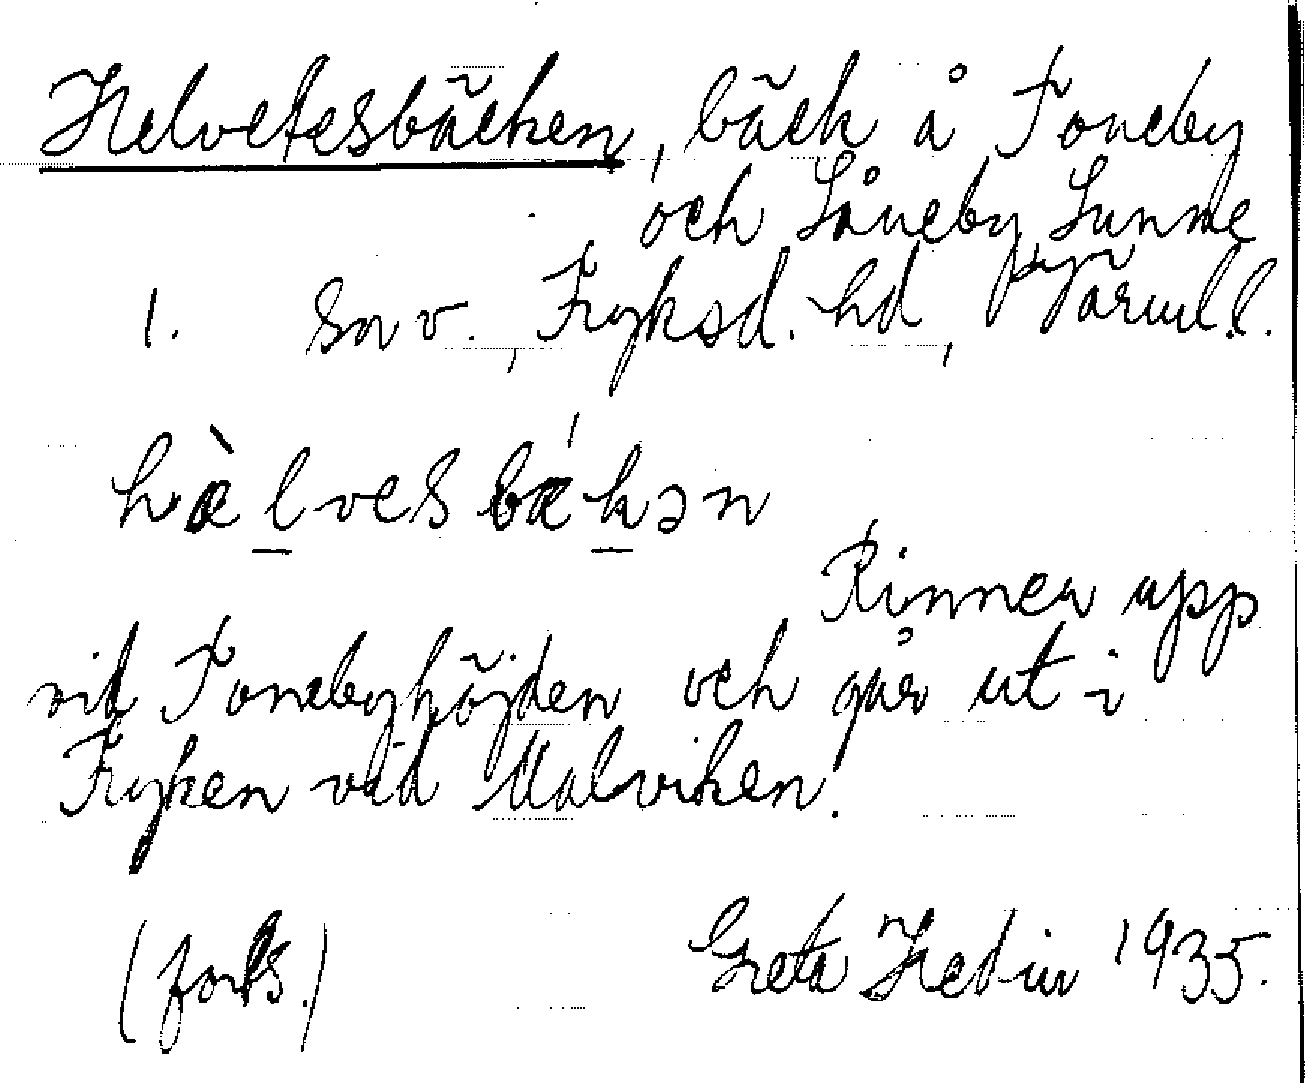 Helvetesbäcken, bäck å Toneby
och Såneby Sunne
1. sn v., Fryksd. hd, Värml.
hæ̀lvesbækən
Rinner upp
vid Tonebyhöjden och går ut i
Fryken vid Malviken.
(forts.) Greta Hedin 1935.